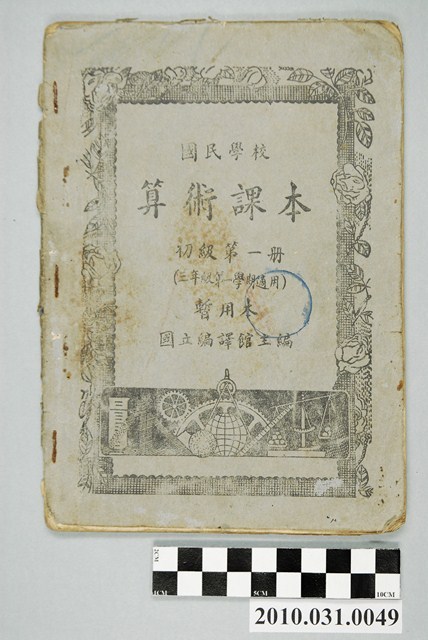 國民學校
算術課本
初級第一册
(三年級第一學期適用)
暫用本
國立編譯館主編
2CM
1CM
5CM
10CM
2010.031.0049